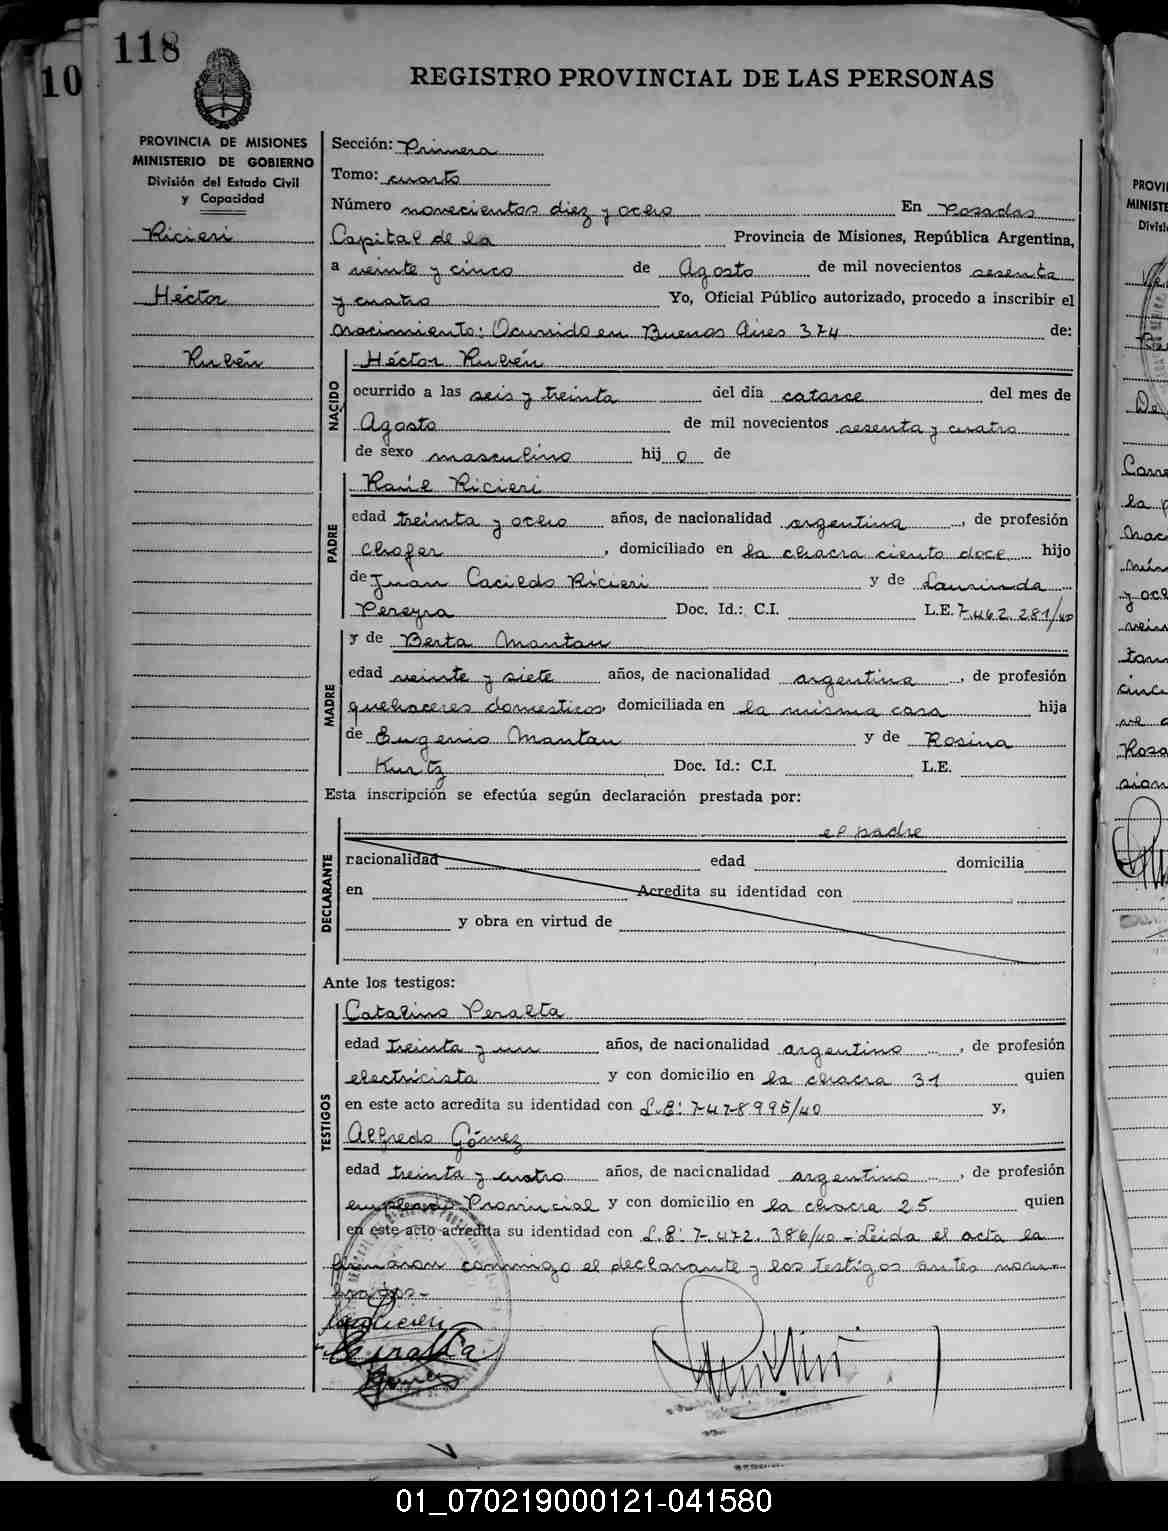 118
10
REGISTRO PROVINCIAL DE LAS PERSONAS
PROVINCIA DE MISIONES
MINISTERIO DE GOBIERNO
División del Estado Civil
y Capacidad
Ricieri
Héctor
Rubén
Sección: Primera
Tomo: cuarto
Número novecientos diez y ocho En Posadas
Capital de la Provincia de Misiones, República Argentina,
a veinte y cinco de Agosto de mil novecientos sesenta
y cuatro Yo, Oficial Público autorizado, procedo a inscribir el
nacimiento: Ocurrido en Buenos Aires 374 de:
NACIDO
Héctor Rubén
ocurrido a las seis y treinta del día catorce del mes de
Agosto de mil novecientos sesenta y cuatro
de sexo masculino hijo de
PADRE
Raúl Ricieri
edad treinta y ocho años, de nacionalidad argentina, de profesión
chofer, domiciliado en la chacra ciento doce hijo
de Juan Ricieri y de Laurinda
Pereyra Doc. Id.: C.I. L.E. 7.462.281/40
MADRE
y de Berta Mantau
edad veinte y siete años, de nacionalidad argentina, de profesión
quehaceres domesticos, domiciliada en la misma casa hija
de Eugenio Mantau y de Rosina
Kurtz Doc. Id.: C.I. L.E.
Esta inscripción se efectúa según declaración prestada por:
DECLARANTE
el padre
nacionalidad edad domicilia
en Acredita su identidad con
y obra en virtud de
Ante los testigos:
TESTIGOS
Catalino Peralta
edad treinta y un años, de nacionalidad argentino, de profesión
electricista y con domicilio en la chacra 31 quien
en este acto acredita su identidad con L.E: 7.478995/40 y,
Alfredo Gómez
edad treinta y cuatro años, de nacicnalidad argentino, de profesión
empleado Provincial y con domicilio en la chacra 25 quien
en este acto acredita su identidad con L.E: 7.472.386/40 - Leida el acta la
firmaron conmigo el declarante y los testigos antes nom-
brados.-
01_070219000121-041580